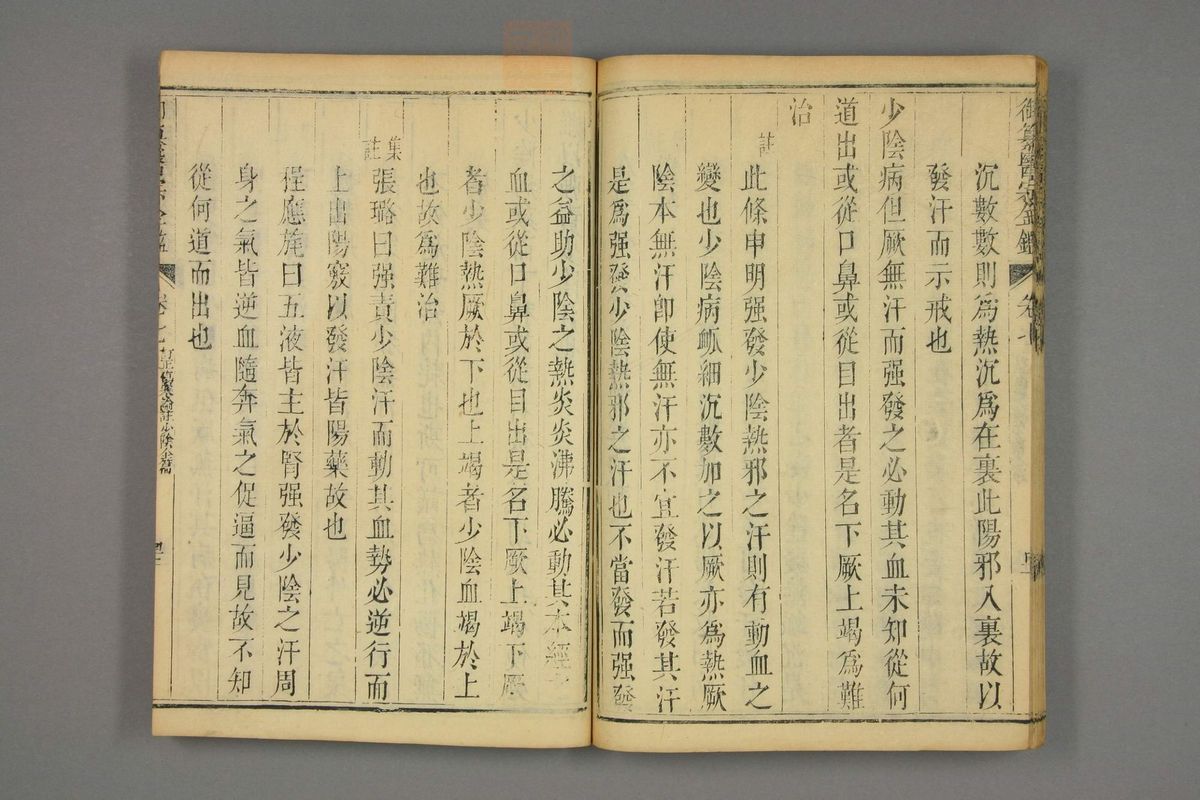 御纂醫宗金鑑 卷七
沉數數則爲熱沉爲在裏此陽邪入裏故以
發汗而示戒也
少陰病但厥無汗而强發之必動其血未知從何
道出或從口鼻或從目出者是名下厥上竭爲難
治
註
此條申明强發少陰熱邪之汗則有動血之
變也少陰病脈細沉數加之以厥亦爲熱厥
陰本無汗卽使無汗亦不宜發汗若發其汗
是爲强發少陰熱邪之汗也不當發而强發
之益助少陰之熱炎炎沸騰必動其本經之
血或從口鼻或從目出是名下厥上竭下厥
者少陰熱厥於下也上竭者少陰血竭於上
也故爲難治
集註
張璐曰强責少陰汗而動其血勢必逆行而
上出陽竅以發汗皆陽藥故也
程應旄曰五液皆主於腎强發少陰之汗周
身之氣皆逆血隨奔氣之促逼而見故不知
從何道而出也
卷七